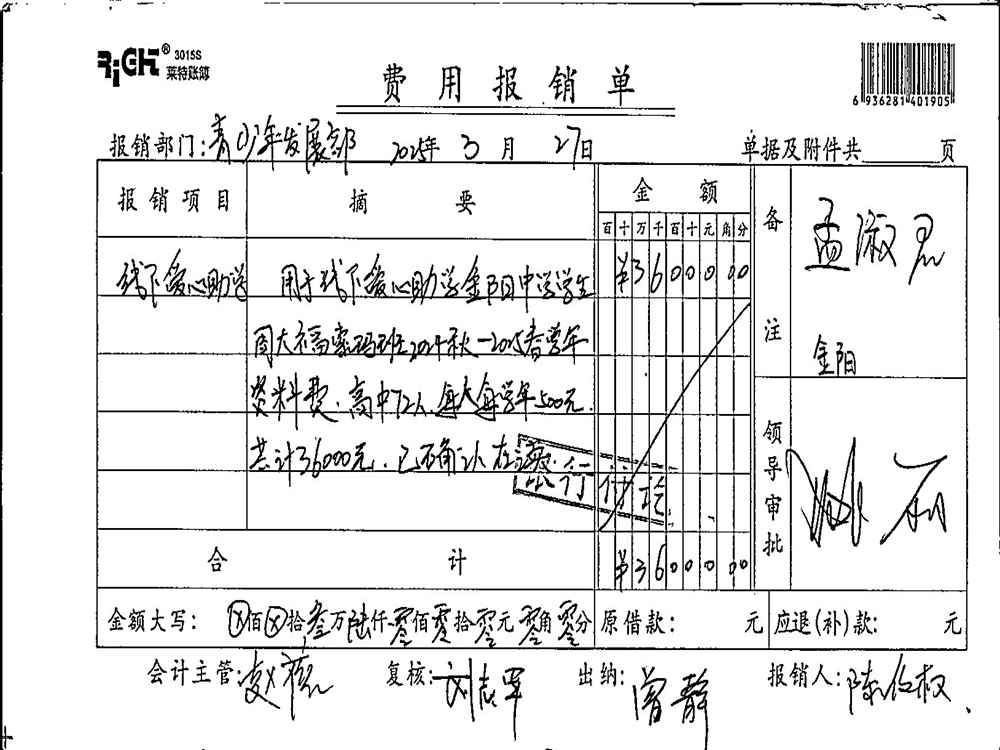 RiGHT® 3015S
莱特账簿
费用报销单
6 936281 401905
报销部门:青少年发展部 2025年 3 月 27日 单据及附件共 页
报销项目 摘要 金额 备注
百十万千百十元角分
线下爱心助学 用于线下爱心助学金阳中学学生 ¥3600000
周大福索玛班2024秋-2025春学年
资料费.高中72人.每人每学年500元.
共计36000元.已确认在读.
银行付讫
孟淑君
金阳
领导审批
合计 ¥3600000
金额大写: ⊗佰⊗拾叁万陆仟零佰零拾零元零角零分 原借款: 元 应退(补)款: 元
会计主管: 复核:刘志军 出纳:曾静 报销人:陈仪权